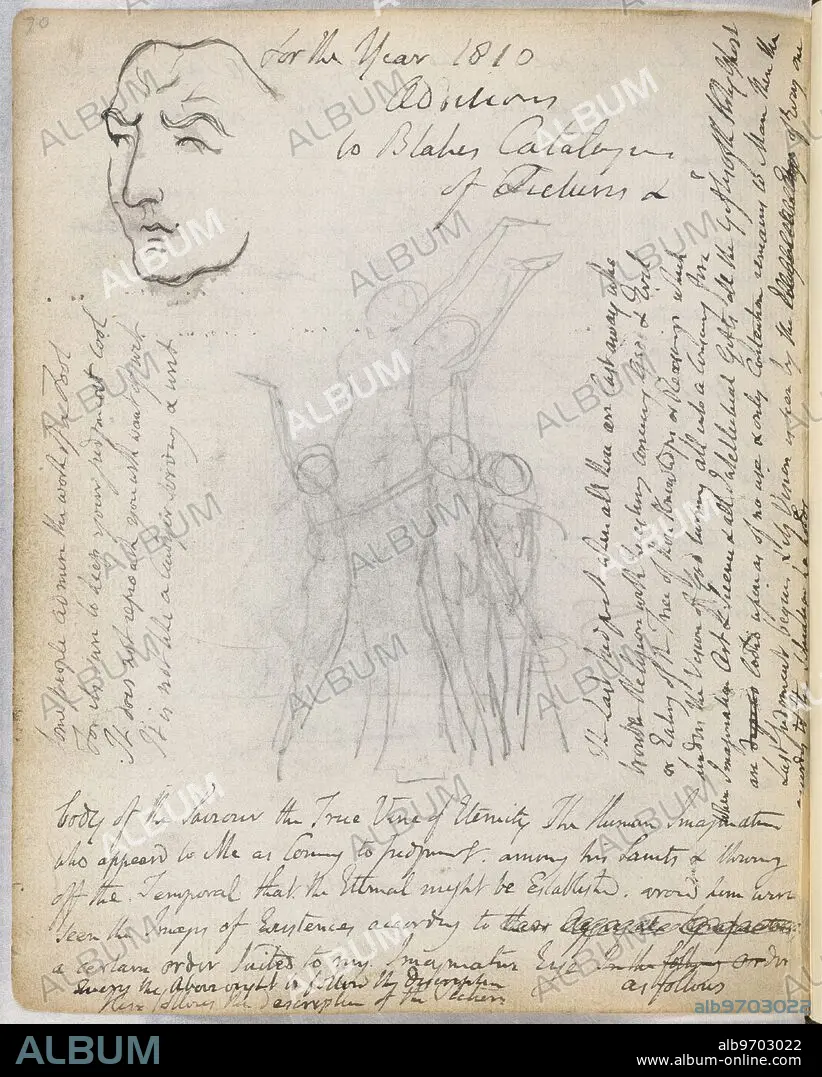 70
For the Year 1810
Additions
to Blakes Catalogue
of Pictures &c
Some people admire the work of a Fool
For its sure to keep your judgment cool
It does not reproach you with want of wit
It is not like a lawyer serving a writ
The Last Judgment when all those are Cast away who
trouble Religion with Questions concerning Good & Evil
or Eating of the Tree of those Knowledges or Reasonings which
hinder the Vision of God turning all into a Consuming fire
When Imagination Art & Science & all Intellectual Gifts all the Gifts of the Holy Ghost
are lookd upon as of no use & only Contention remains to Man then the
Last Judgment begins & its Vision is seen by the Imaginative Eye of Every one
according to the situation he holds
body of the Saviour the True Vine of Eternity The Human Imagination
who appeard to Me as Coming to Judgment. among his Saints & throwing
off the Temporal that the Eternal might be Establishd. around him were
seen the Images of Existences according to
a certain order suited to my Imaginative Eye In the following order
as follows
Query the Above ought to follow the description
Here follows the description of the Picture
ALBUM
alb9703022
ALBUM
alb9703022
www.album-online.com